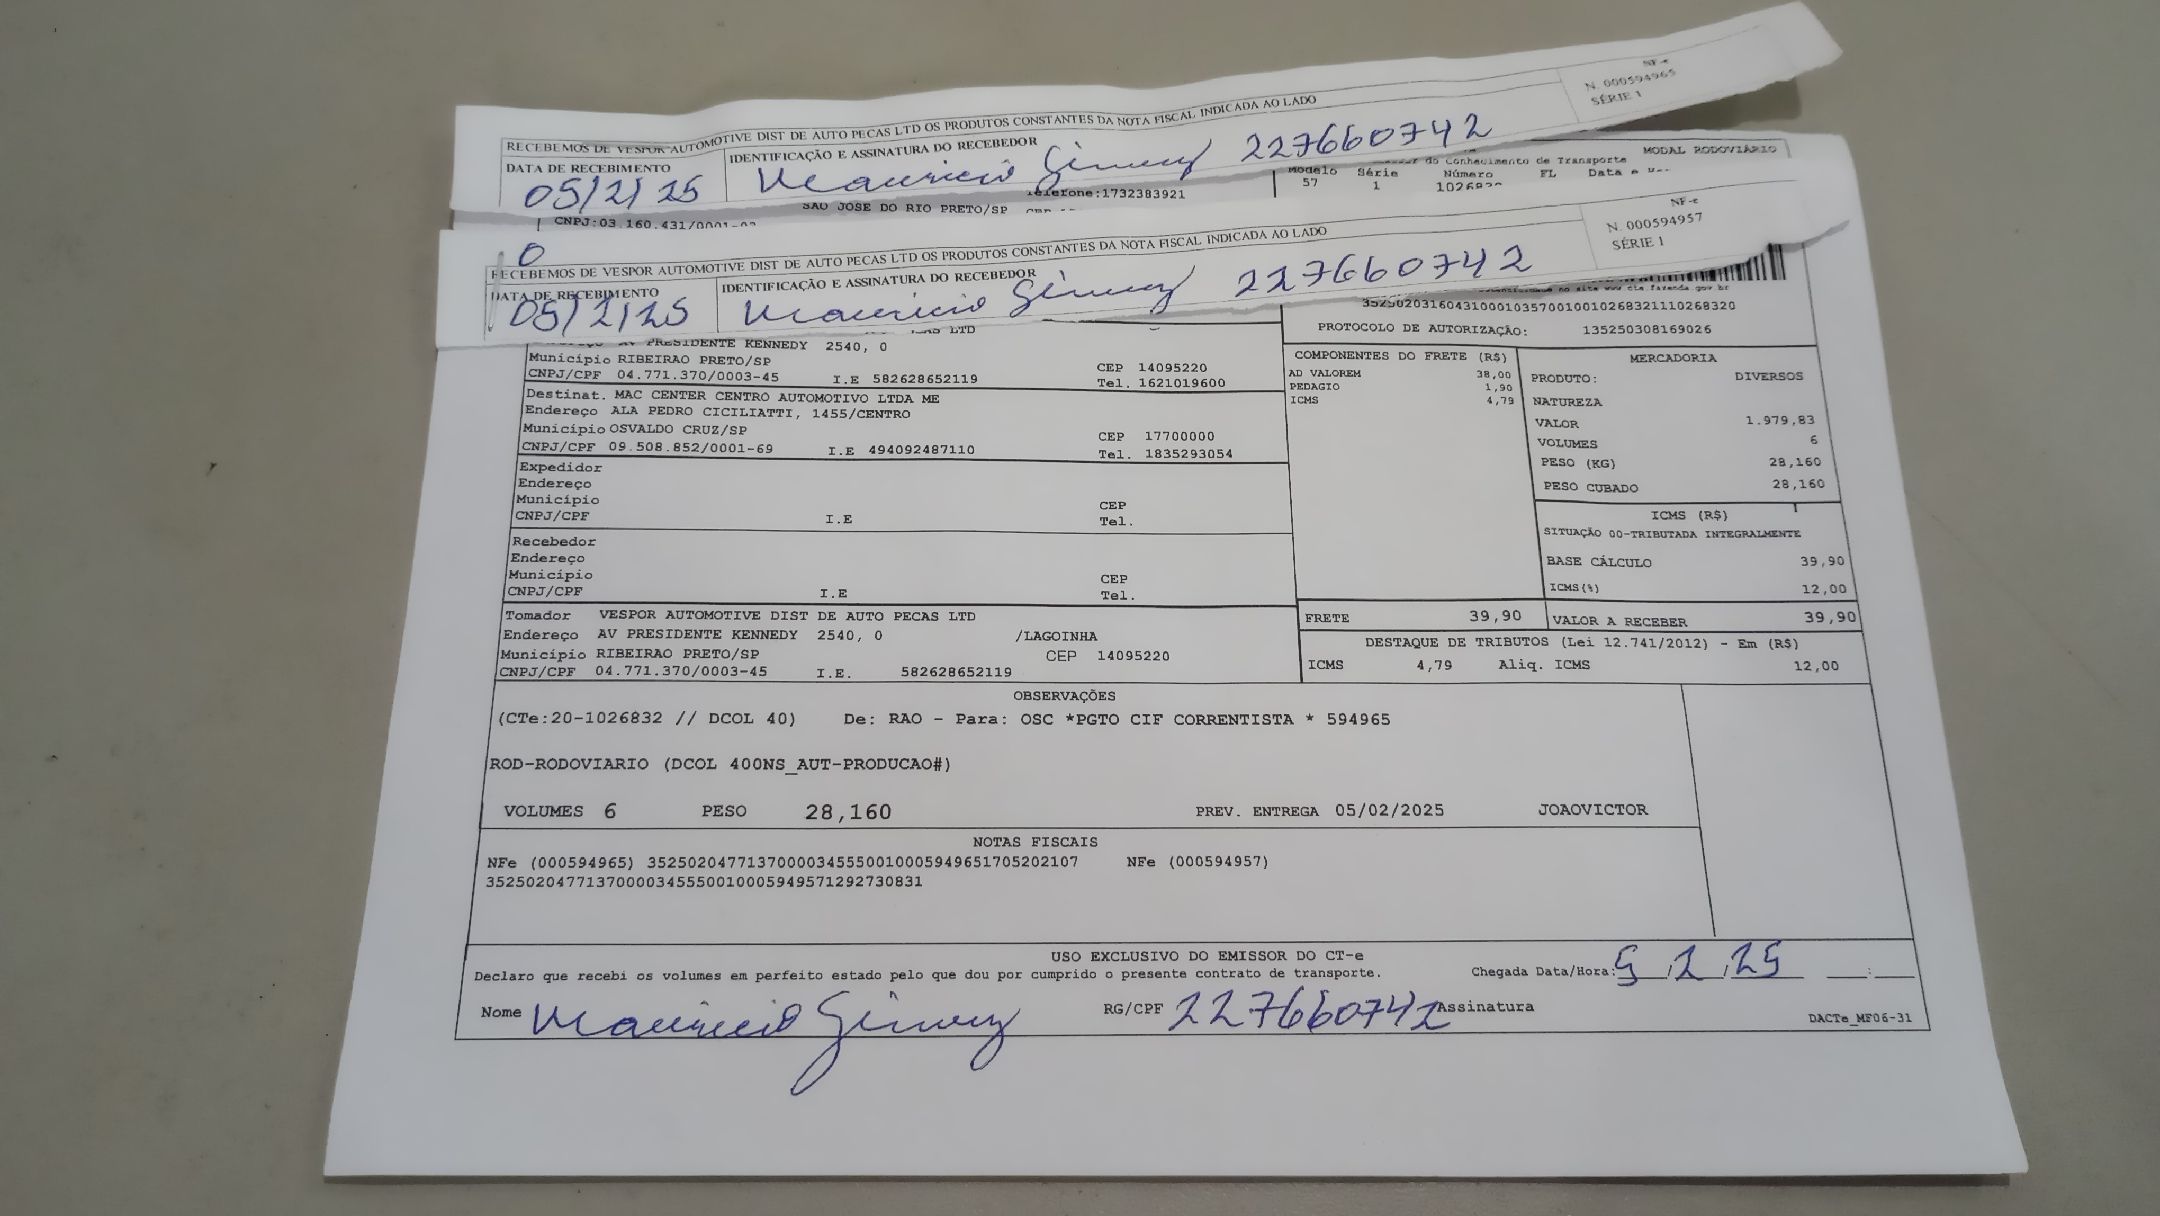 NF-e
N. 000594965
SÉRIE 1
RECEBEMOS DE VESPOR AUTOMOTIVE DIST DE AUTO PECAS LTD OS PRODUTOS CONSTANTES DA NOTA FISCAL INDICADA AO LADO
DATA DE RECEBIMENTO
IDENTIFICAÇÃO E ASSINATURA DO RECEBEDOR
05/2/25
Mauricio Gimenez 227660742
MODAL RODOVIÁRIO
do Conhecimento de Transporte
Modelo Série Número FL Data e
57 1
Telefone:1732383921
SAO JOSE DO RIO PRETO/SP
CNPJ:03.160.431/0001-
NF-e
N. 000594957
SÉRIE 1
0
RECEBEMOS DE VESPOR AUTOMOTIVE DIST DE AUTO PECAS LTD OS PRODUTOS CONSTANTES DA NOTA FISCAL INDICADA AO LADO
DATA DE RECEBIMENTO
IDENTIFICAÇÃO E ASSINATURA DO RECEBEDOR
05/2/25
Mauricio Gimenez 227660742
no site www.cte.fazenda.gov.br
35250203160431000103570010010268321110268320
PROTOCOLO DE AUTORIZAÇÃO: 135250308169026
LTD
AV PRESIDENTE KENNEDY 2540, 0
Município RIBEIRAO PRETO/SP CEP 14095220
CNPJ/CPF 04.771.370/0003-45 I.E 582628652119 Tel. 1621019600
Destinat. MAC CENTER CENTRO AUTOMOTIVO LTDA ME
Endereço ALA PEDRO CICILIATTI, 1455/CENTRO
Município OSVALDO CRUZ/SP CEP 17700000
CNPJ/CPF 09.508.852/0001-69 I.E 494092487110 Tel. 1835293054
Expedidor
Endereço
Município CEP
CNPJ/CPF I.E Tel.
Recebedor
Endereço
Município CEP
CNPJ/CPF I.E Tel.
Tomador VESPOR AUTOMOTIVE DIST DE AUTO PECAS LTD
Endereço AV PRESIDENTE KENNEDY 2540, 0 /LAGOINHA
Município RIBEIRAO PRETO/SP CEP 14095220
CNPJ/CPF 04.771.370/0003-45 I.E. 582628652119
COMPONENTES DO FRETE (R$)
AD VALOREM 38,00
PEDAGIO 1,90
ICMS 4,79
MERCADORIA
PRODUTO: DIVERSOS
NATUREZA
VALOR 1.979,83
VOLUMES 6
PESO (KG) 28,160
PESO CUBADO 28,160
ICMS (R$)
SITUAÇÃO 00-TRIBUTADA INTEGRALMENTE
BASE CÁLCULO 39,90
ICMS(%) 12,00
FRETE 39,90
VALOR A RECEBER 39,90
DESTAQUE DE TRIBUTOS (Lei 12.741/2012) - Em (R$)
ICMS 4,79 Aliq. ICMS 12,00
OBSERVAÇÕES
(CTe:20-1026832 // DCOL 40) De: RAO - Para: OSC *PGTO CIF CORRENTISTA * 594965
ROD-RODOVIARIO (DCOL 400NS_AUT-PRODUCAO#)
VOLUMES 6 PESO 28,160 PREV. ENTREGA 05/02/2025 JOAOVICTOR
NOTAS FISCAIS
NFe (000594965) 35250204771370000345550010005949651705202107 NFe (000594957)
35250204771370000345550010005949571292730831
USO EXCLUSIVO DO EMISSOR DO CT-e
Declaro que recebi os volumes em perfeito estado pelo que dou por cumprido o presente contrato de transporte. Chegada Data/Hora: 5 /2 /25 :
Nome Mauricio Gimenez RG/CPF 227660742 Assinatura
DACTe_MF06-31